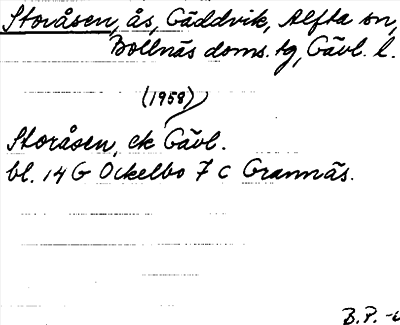 Storåsen, ås, Gäddvik, Alfta sn,
Bollnäs doms. tg, Gävl. l.
(1958)
Storåsen, ek Gävl.
bl. 14 G Ockelbo 7 c Grannäs.
B.P.